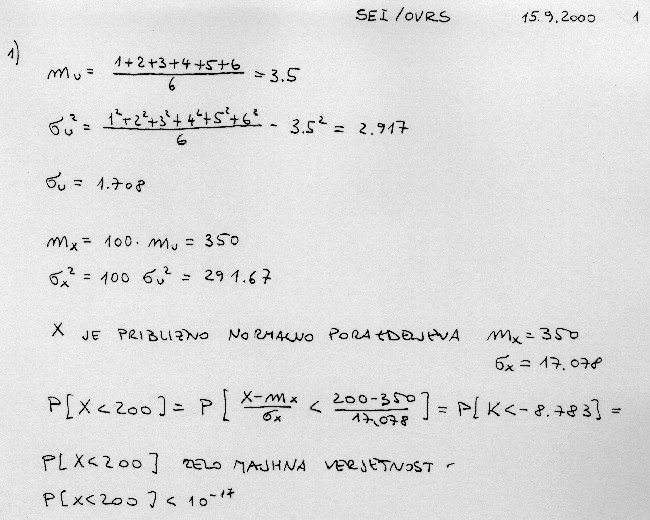 SEI/OVRS 15.9.2000 1
1)
m_U = (1+2+3+4+5+6)/6 = 3.5
σ_U² = (1²+2²+3²+4²+5²+6²)/6 - 3.5² = 2.917
σ_U = 1.708
m_X = 100 · m_U = 350
σ_X² = 100 σ_U² = 291.67
X JE PRIBLIZNO NORMALNO PORAZDELJENA m_X = 350
σ_X = 17.078
P[X<200] = P[(X-m_X)/σ_X < (200-350)/17.078] = P[K<-8.783] =
P[X<200] ZELO MAJHNA VERJETNOST
P[X<200] < 10⁻¹⁷